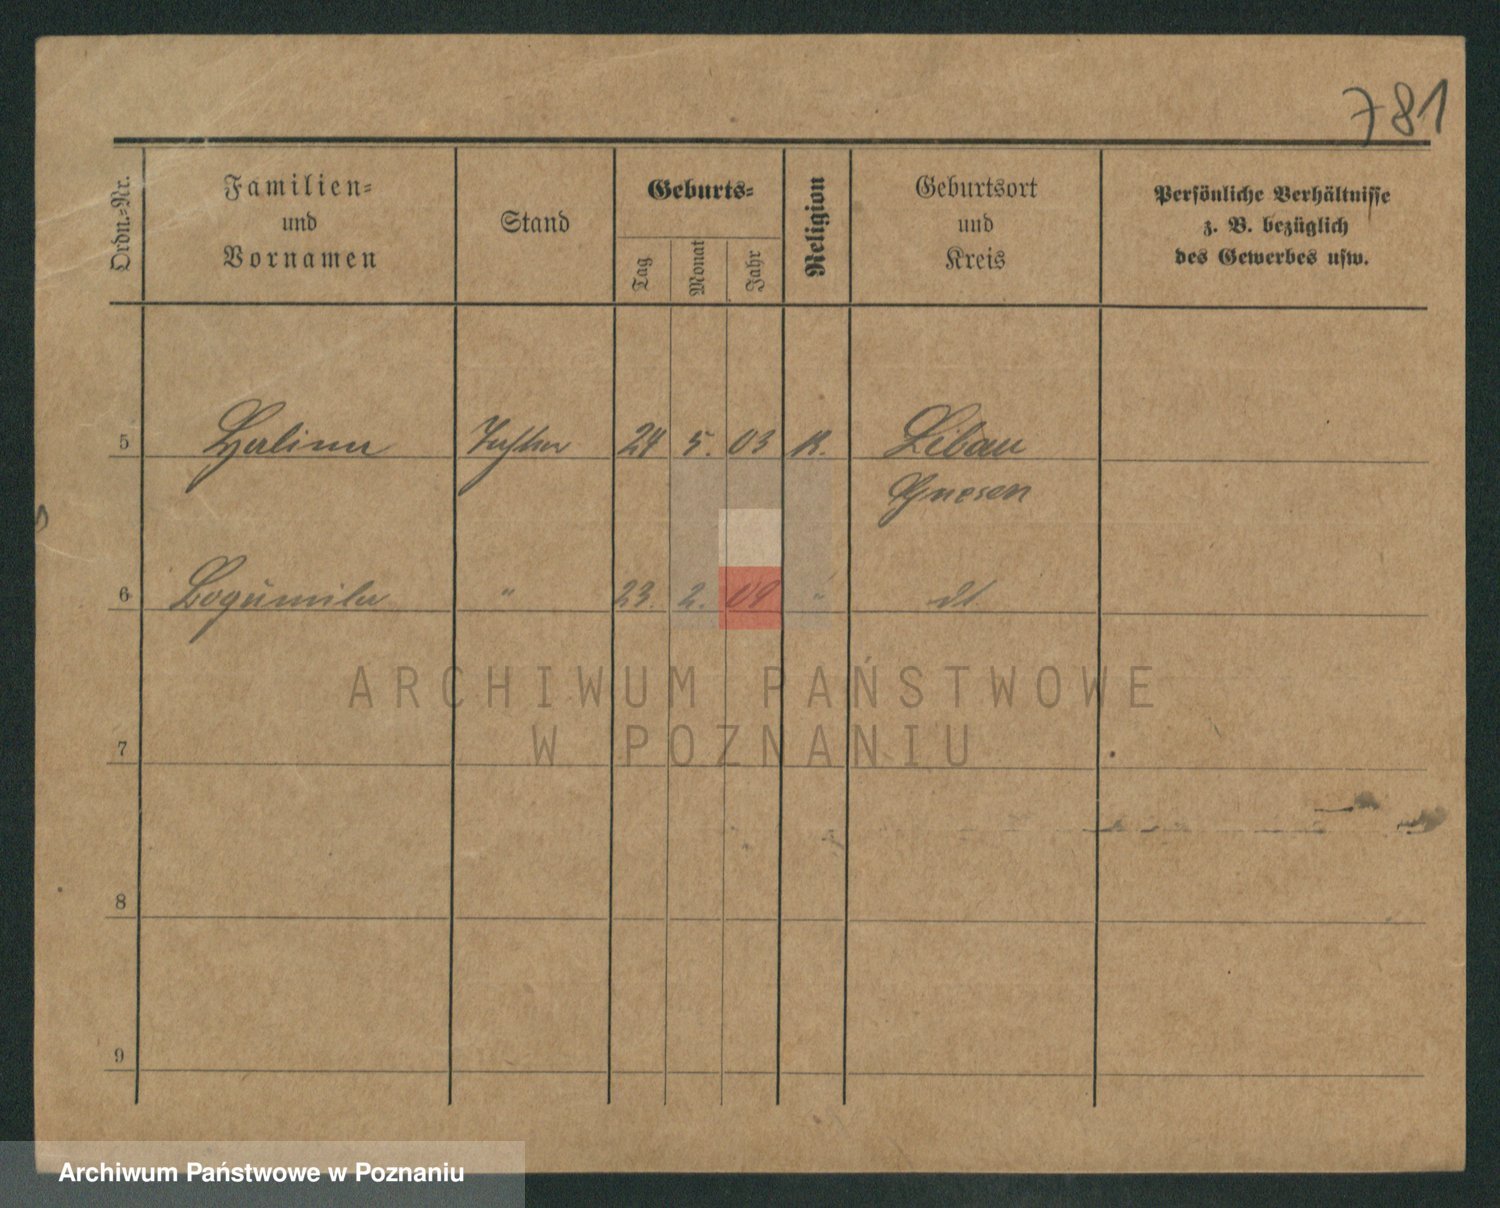 781
Ordn.-Nr.
Familien-
und
Vornamen
Stand
Geburts-
Tag
Monat
Jahr
Religion
Geburtsort
und
Kreis
Persönliche Verhältnisse
z. B. bezüglich
des Gewerbes usw.
5 Halina Tochter 24 5. 03 K. Libau
Gnesen
6 Bogumila " 23. 2. 09 " dt
ARCHIWUM PAŃSTWOWE
W POZNANIU
7
8
9
Archiwum Państwowe w Poznaniu